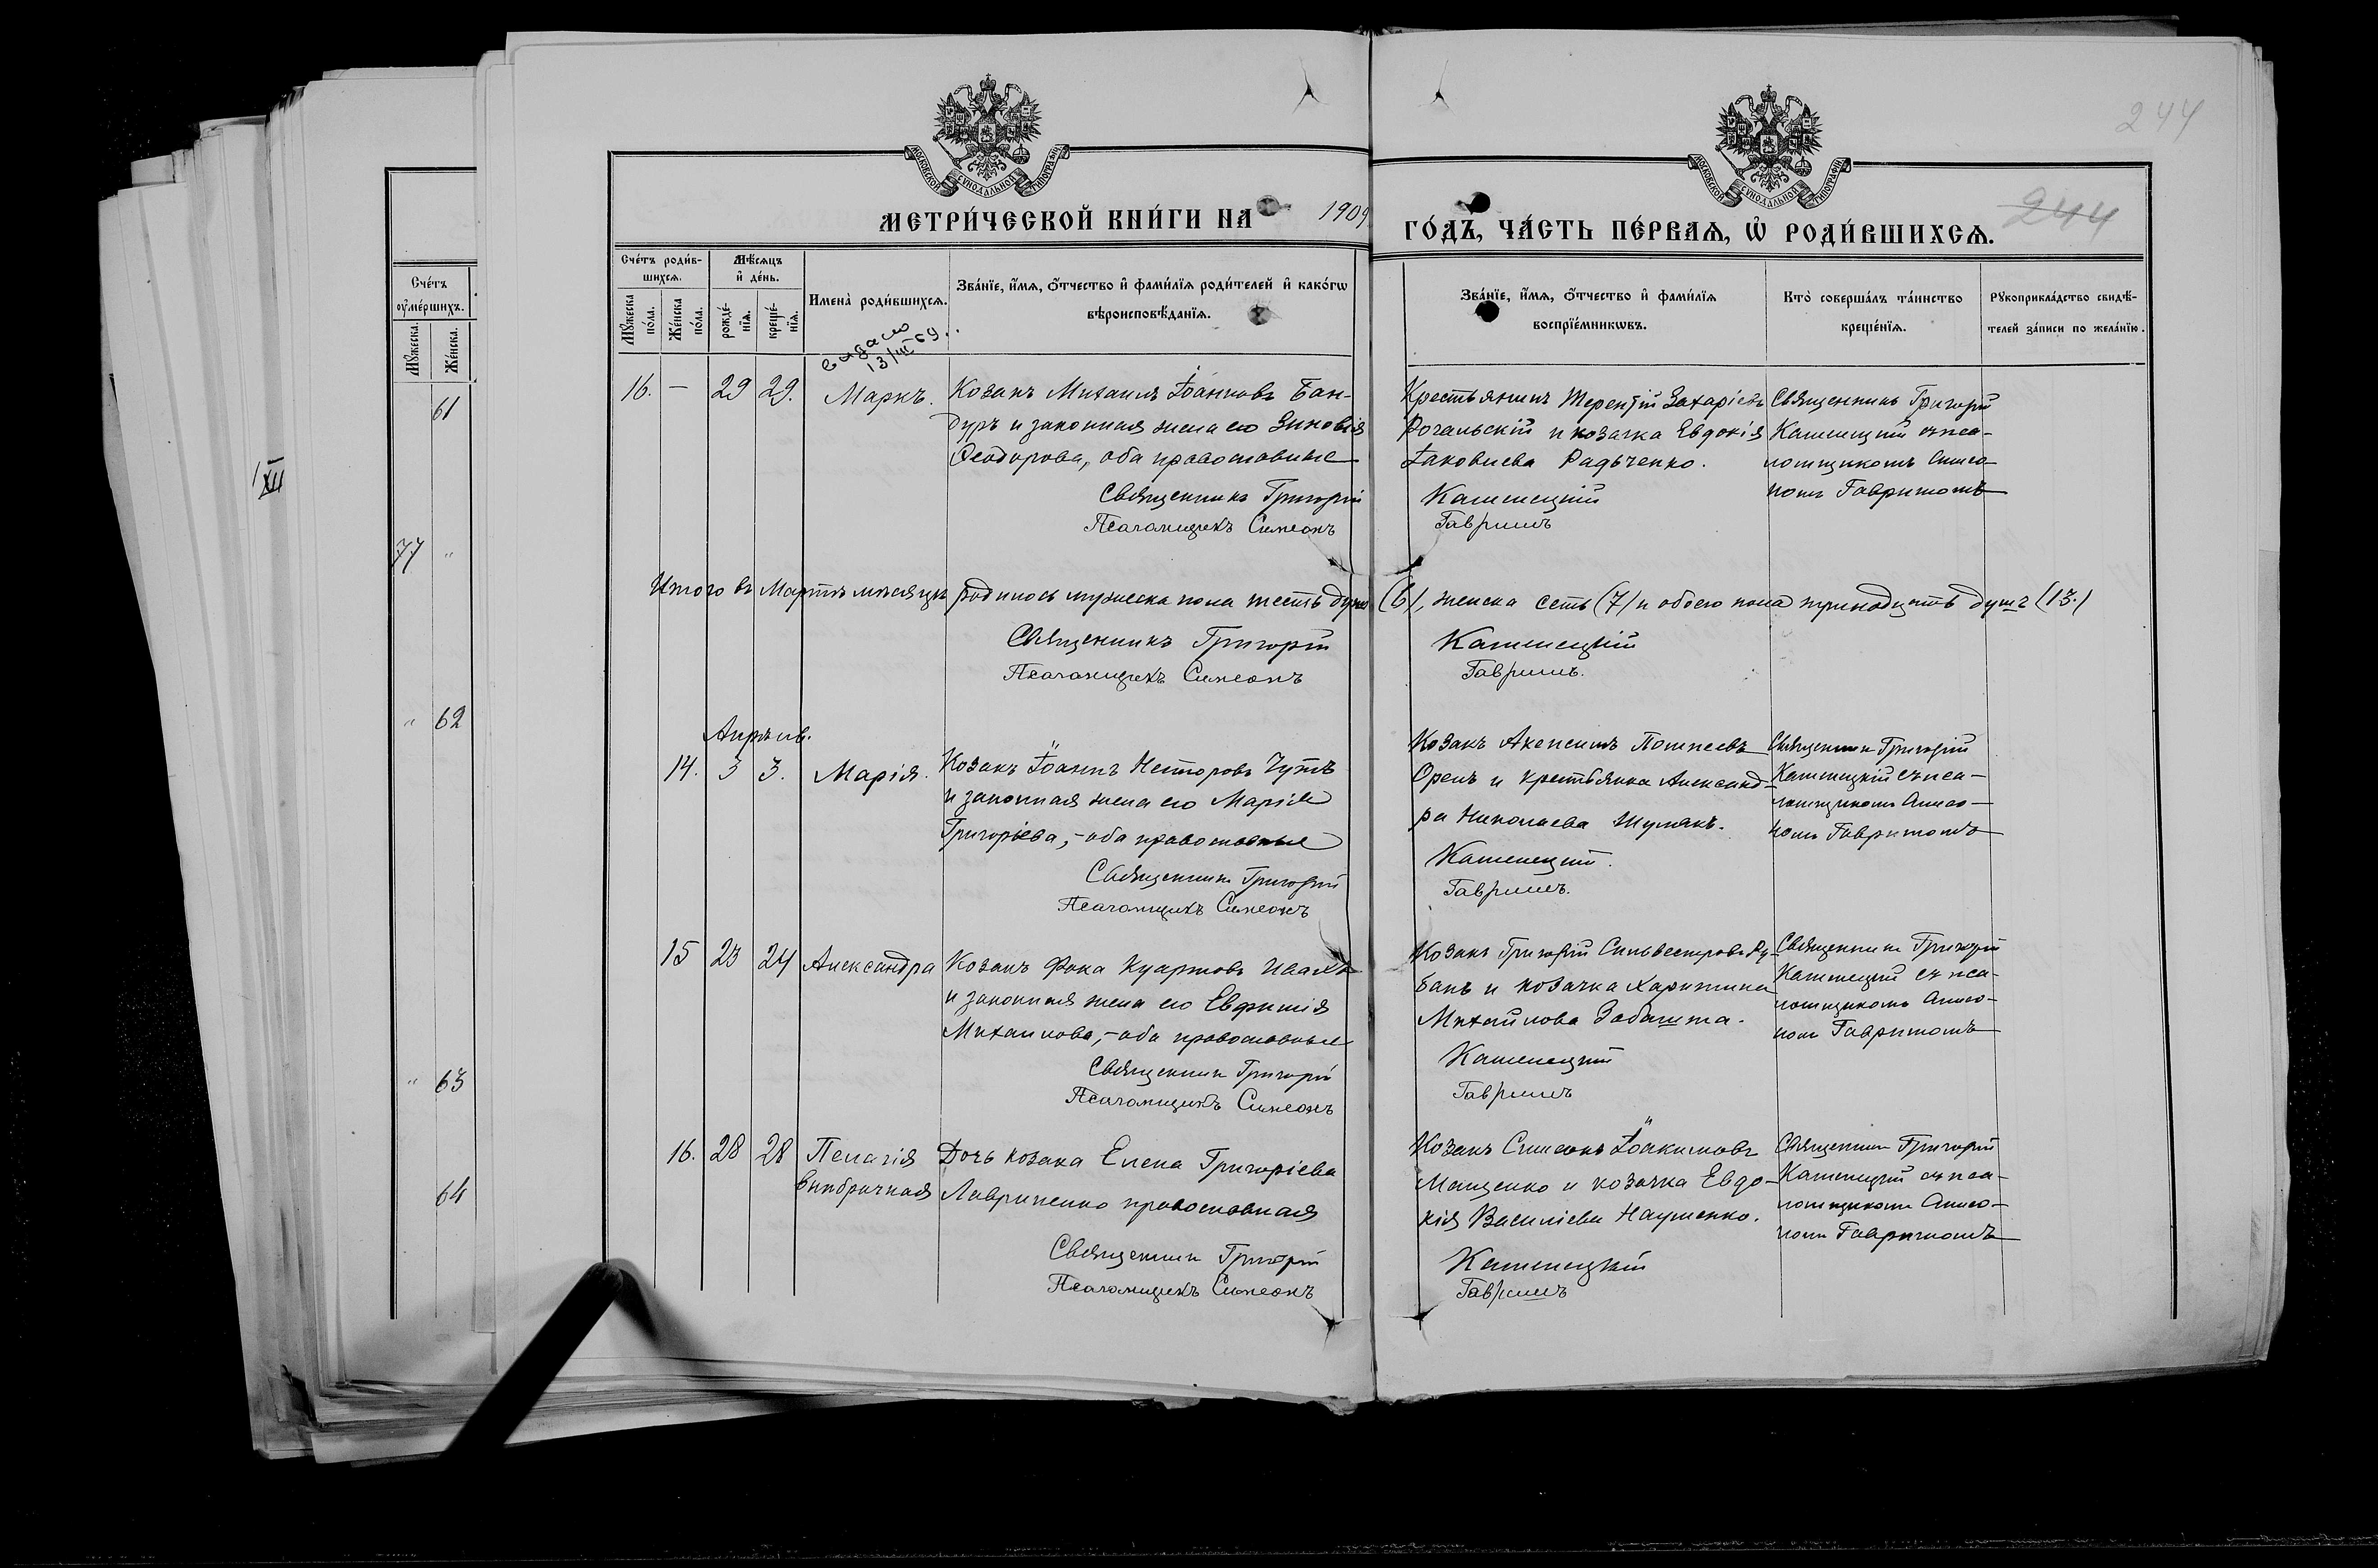 244
244
МОСКОВСКОЙ СѴНОДАЛЬНОЙ ТИПОГРАФІИ
МОСКОВСКОЙ СѴНОДАЛЬНОЙ ТИПОГРАФІИ
МЕТРИ́ЧЕСКОЙ КНИ́ГИ НА 1909 ГО́ДЪ, ЧА́СТЬ ПЕ́РВАѦ, Ѡ҆ РОДИ́ВШИХСѦ.
Сче́тъ роди́в-
шихсѧ.
Мѣ́сѧцъ
и҆ де́нь.
Мꙋ́жеска
по́ла.
Же́нска
по́ла.
рожде́-
нїѧ.
креще́-
нїѧ.
Имена̀ роди́вшихсѧ.
Зва́нїе, и҆́мѧ, ѻ҆́тчество и҆ фами́лїѧ роди́телей и҆ како́гѡ
вѣроисповѣ́данїѧ.
Зва́нїе, и҆́мѧ, ѻ҆́тчество и҆ фами́лїѧ
воспрїе́мникѡвъ.
Кто̀ соверша́лъ та́инство
креще́нїѧ.
Рꙋкоприкла́дство свидѣ́-
телей за́писи по жела́нїю.
Сче́тъ
ѹ҆ме́ршихъ.
Мꙋ́жеска.
Же́нска.
61
77 "
" 62
" 63
64
XII
видано
13/III 69.
16. — 29 29. Маркъ.
Козакъ Михаилъ Іоанновъ Бан-
дуръ и законная жена его Зиновія
Ѳеодорова, оба православные
Священникъ Григорій
Псаломщикъ Симеонъ
Крестьянинъ Терентій Захаріевъ
Рогальскій и козачка Евдокія
Іаковлева Радченко.
Каменецкій
Гавришъ
Священникъ Григорій
Каменецкій съ пса-
ломщикомъ Симео-
номъ Гавришомъ
Итого въ Мартѣ мѣсяцѣ родилось мужеска пола шесть душъ (6), женска семь (7) и обоего пола тринадцать душъ (13.)
Священникъ Григорій Каменецкій
Псаломщикъ Симеонъ Гавришъ.
Апрѣль.
14. 3 3. Марія.
Козакъ Іоаннъ Несторовъ Чутъ
и законная жена его Марія
Григоріева, – оба православные
Священникъ Григорій
Псаломщикъ Симеонъ
Козакъ Алексій
Орелъ и крестьянка Александ-
ра Николаева Шулякъ.
Каменецкій.
Гавришъ.
Священникъ Григорій
Каменецкій съ пса-
ломщикомъ Симео-
номъ Гавришомъ
15 23 24 Александра
Козакъ Фока Куартовъ
и законная жена его Евфимія
Михаилова, – оба православные
Священникъ Григорій
Псаломщикъ Симеонъ
Козакъ Григорій Сильвестровъ Ру-
банъ и козачка Харитина
Михайлова Забашта.
Каменецкій
Гавришъ
Священникъ Григорій
Каменецкій съ пса-
ломщикомъ Симео-
номъ Гавришомъ
16. 28 28 Пелагія
внѣбрачная
Дочь козака Елена Григоріева
Лавриненко православная
Священникъ Григорій
Псаломщикъ Симеонъ
Козакъ Симеонъ Іоакимовъ
Мащенко и козачка Евдо-
кія Василіева Науменко.
Каменецкій
Гавришъ
Священникъ Григорій
Каменецкій съ пса-
ломщикомъ Симео-
номъ Гавришомъ